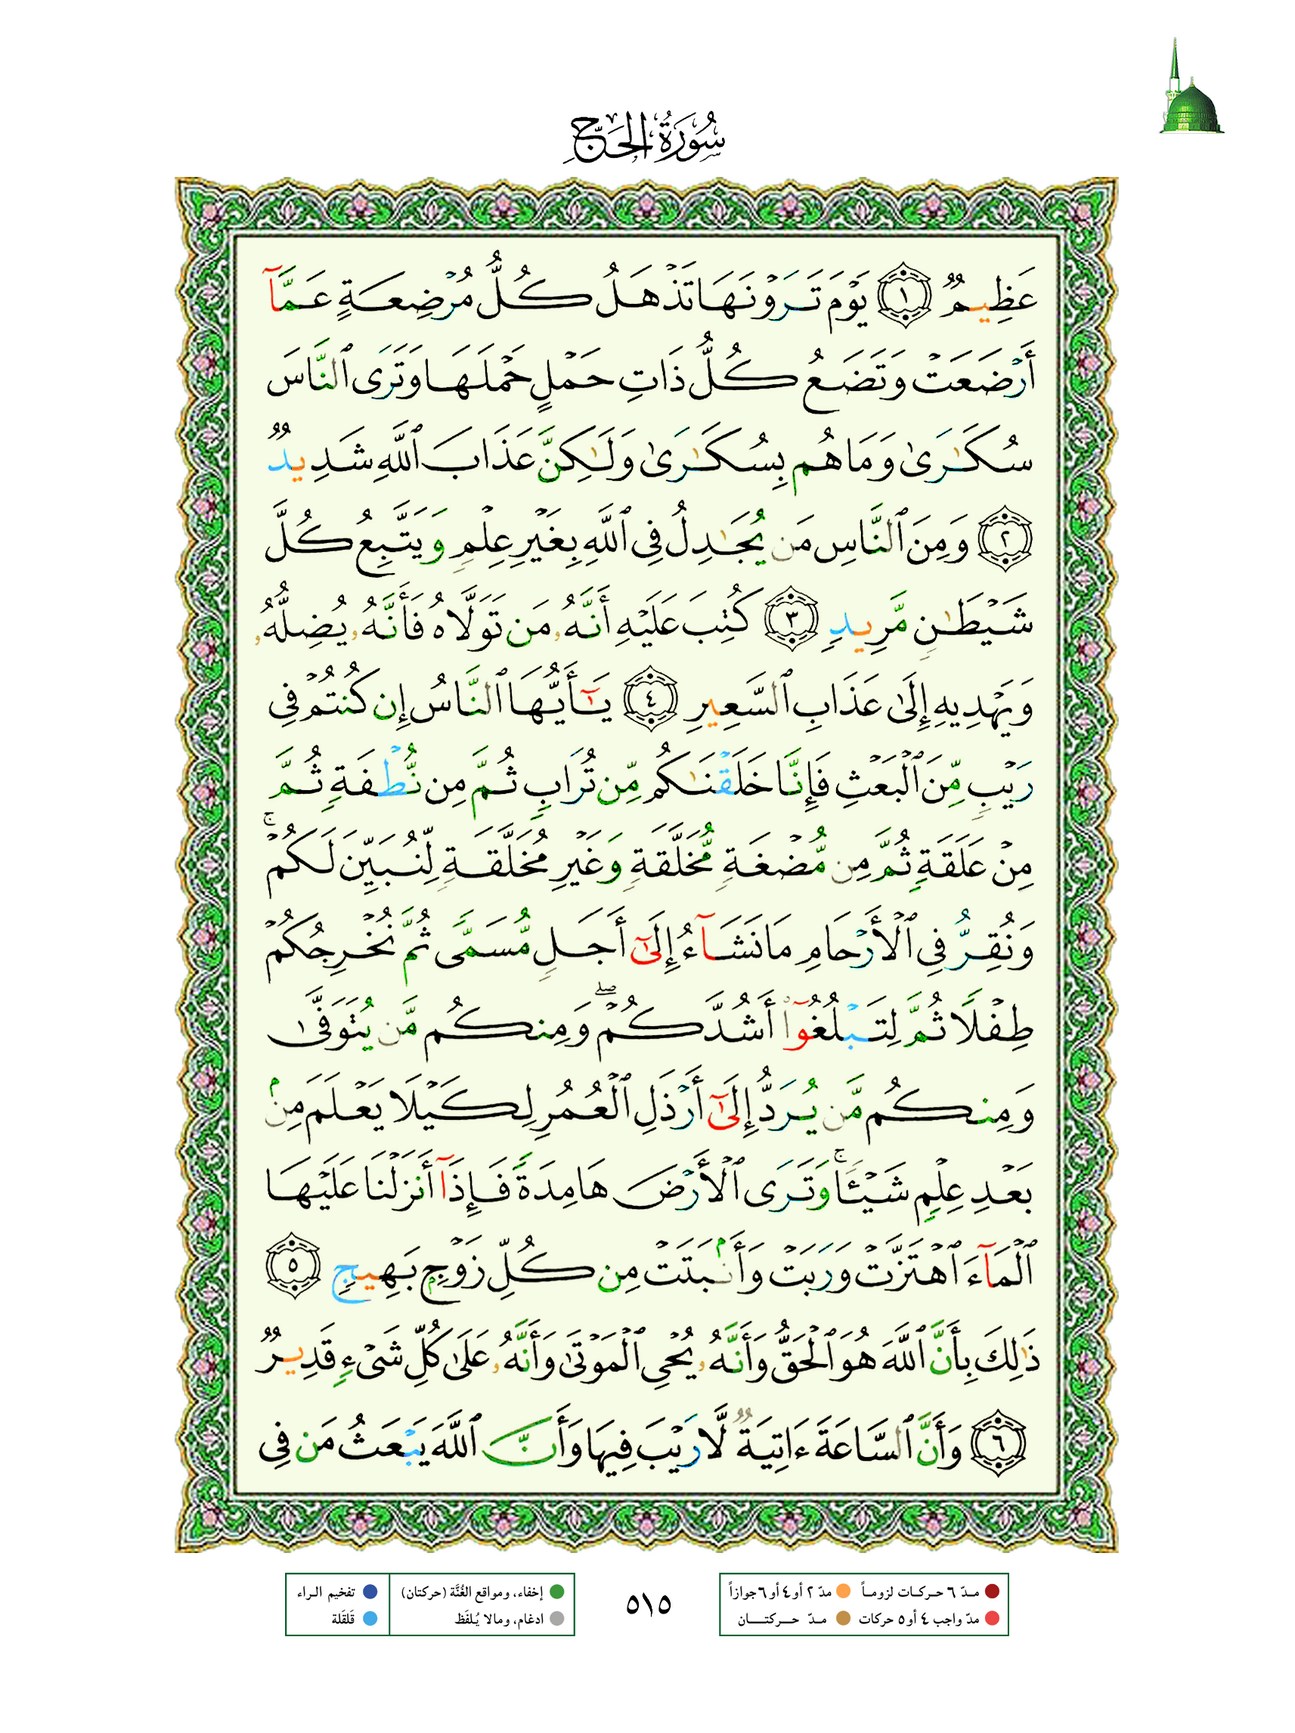 سُورَةُ الحَجِّ
عَظِيمٌ ١ يَوْمَ تَرَوْنَهَا تَذْهَلُ كُلُّ مُرْضِعَةٍ عَمَّآ
أَرْضَعَتْ وَتَضَعُ كُلُّ ذَاتِ حَمْلٍ حَمْلَهَا وَتَرَى ٱلنَّاسَ
سُكَـٰرَىٰ وَمَا هُم بِسُكَـٰرَىٰ وَلَـٰكِنَّ عَذَابَ ٱللَّهِ شَدِيدٌ
٢ وَمِنَ ٱلنَّاسِ مَن يُجَـٰدِلُ فِى ٱللَّهِ بِغَيْرِ عِلْمٍ وَيَتَّبِعُ كُلَّ
شَيْطَـٰنٍ مَّرِيدٍ ٣ كُتِبَ عَلَيْهِ أَنَّهُۥ مَن تَوَلَّاهُ فَأَنَّهُۥ يُضِلُّهُۥ
وَيَهْدِيهِ إِلَىٰ عَذَابِ ٱلسَّعِيرِ ٤ يَـٰٓأَيُّهَا ٱلنَّاسُ إِن كُنتُمْ فِى
رَيْبٍ مِّنَ ٱلْبَعْثِ فَإِنَّا خَلَقْنَـٰكُم مِّن تُرَابٍ ثُمَّ مِن نُّطْفَةٍ ثُمَّ
مِنْ عَلَقَةٍ ثُمَّ مِن مُّضْغَةٍ مُّخَلَّقَةٍ وَغَيْرِ مُخَلَّقَةٍ لِّنُبَيِّنَ لَكُمْ ۚ
وَنُقِرُّ فِى ٱلْأَرْحَامِ مَا نَشَآءُ إِلَىٰٓ أَجَلٍ مُّسَمًّى ثُمَّ نُخْرِجُكُمْ
طِفْلًا ثُمَّ لِتَبْلُغُوٓا۟ أَشُدَّكُمْ ۖ وَمِنكُم مَّن يُتَوَفَّىٰ
وَمِنكُم مَّن يُرَدُّ إِلَىٰٓ أَرْذَلِ ٱلْعُمُرِ لِكَيْلَا يَعْلَمَ مِنۢ
بَعْدِ عِلْمٍ شَيْـًٔا ۚ وَتَرَى ٱلْأَرْضَ هَامِدَةً فَإِذَآ أَنزَلْنَا عَلَيْهَا
ٱلْمَآءَ ٱهْتَزَّتْ وَرَبَتْ وَأَنۢبَتَتْ مِن كُلِّ زَوْجٍۭ بَهِيجٍ ٥
ذَٰلِكَ بِأَنَّ ٱللَّهَ هُوَ ٱلْحَقُّ وَأَنَّهُۥ يُحْىِ ٱلْمَوْتَىٰ وَأَنَّهُۥ عَلَىٰ كُلِّ شَىْءٍ قَدِيرٌ
٦ وَأَنَّ ٱلسَّاعَةَ ءَاتِيَةٌ لَّا رَيْبَ فِيهَا وَأَنَّ ٱللَّهَ يَبْعَثُ مَن فِى
مدّ ٦ حركات لزوماً مدّ ٢ أو ٤ أو ٦ جوازاً
مدّ واجب ٤ أو ٥ حركات مدّ حركتان
٥١٥
إخفاء، ومواقع الغُنَّة (حركتان) تفخيم الراء
ادغام، ومالا يُلفَظ قلقلة